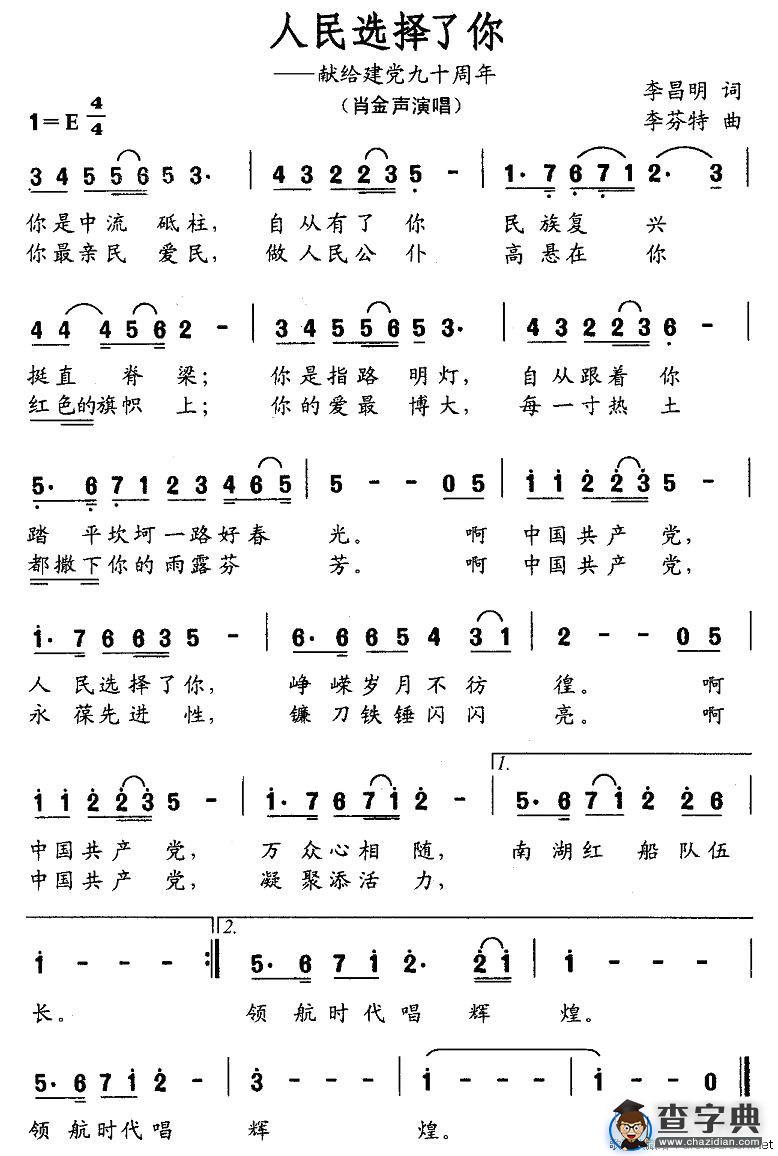 人民选择了你
——献给建党九十周年
（肖金声演唱）
李昌明 词
1=E 4/4
李芬特 曲
3 4 5 5 6 5 3· | 4 3 2 2 3 5 - | 1· 7 6 7 1 2· 3 |
你是中流 砥柱， 自从有了 你 民族复 兴
你最亲民 爱民， 做人民公 仆 高悬在 你
4 4 4 5 6 2 - | 3 4 5 5 6 5 3· | 4 3 2 2 3 6 - |
挺直 脊 梁； 你是指路 明灯， 自从跟着 你
红色的旗帜 上； 你的爱最 博大， 每一寸热 土
5· 6 7 1 2 3 4 6 5 | 5 - - 0 5 | 1 1 2 2 3 5 - |
踏 平坎坷一路好春 光。 啊 中国共产 党，
都撒下你的雨露芬 芳。 啊 中国共产 党，
1· 7 6 6 3 5 - | 6· 6 6 5 4 3 1 | 2 - 0 5 |
人 民选择了你， 峥 嵘岁月不彷 徨。 啊
永 葆先进 性， 镰 刀铁锤闪闪 亮。 啊
1.
1 1 2 2 3 5 - | 1· 7 6 7 1 2 - | 5· 6 7 1 2 2 6 |
中国共产 党， 万 众心相 随， 南 湖红 船队伍
中国共产 党， 凝 聚添活 力，
2.
1 - - - :| 5· 6 7 1 2· 2 1 | 1 - - - |
长。 领 航时代唱 辉 煌。
5· 6 7 1 2 - | 3 - - - | 1 - - - | 1 - - 0 ‖
领 航时代唱 辉 煌。
查字典
www.chazidian.com